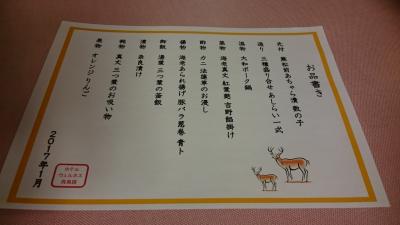 お品書き
先付 蕪松前あちゃら漬 数の子
造り 三種盛り合せ あしらい一式
温物 大和ポーク鍋
蒸物 海老真丈 紅葉麩 吉野餡掛け
酢物 カニ 法蓮草のお浸し
揚物 海老あられ揚げ 豚バラ葱巻 青ト
御飯 湯葉 三つ葉の釜飯
漬物 奈良漬け
椀物 真丈 三つ葉のお吸い物
果物 オレンジ りんご
2017年1月
ホテル
ウェルネス
飛鳥路